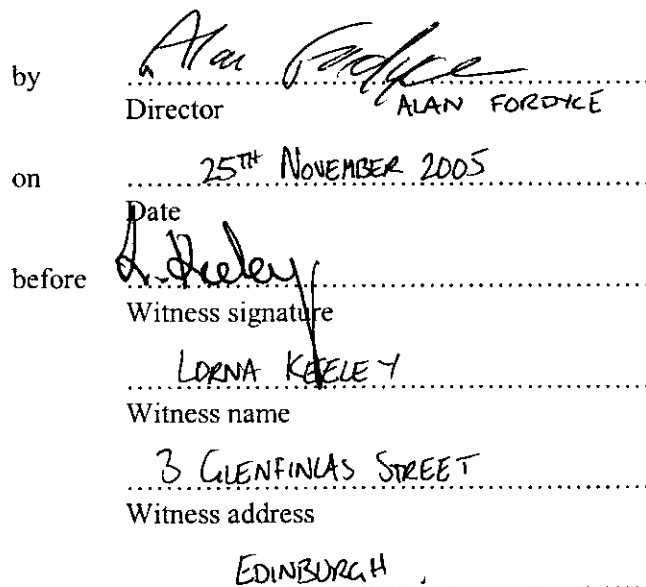 by Alan Fordyce
Director ALAN FORDYCE
on 25TH NOVEMBER 2005
Date
before L. Keeley
Witness signature
LORNA KEELEY
Witness name
3 GLENFINLAS STREET
Witness address
EDINBURGH.